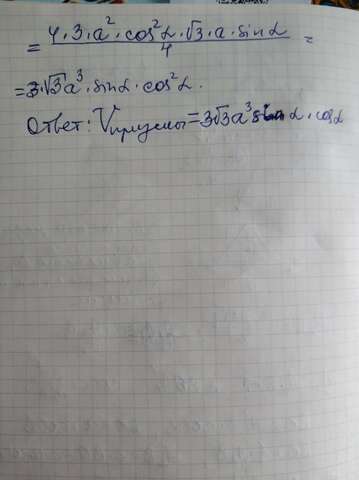 = 4·3·a²·cos²α·√3·a·sinα / 4 =
= 3·√3a³·sinα·cos²α.
Ответ: Vпризмы = 3√3a³ sinα·cosα